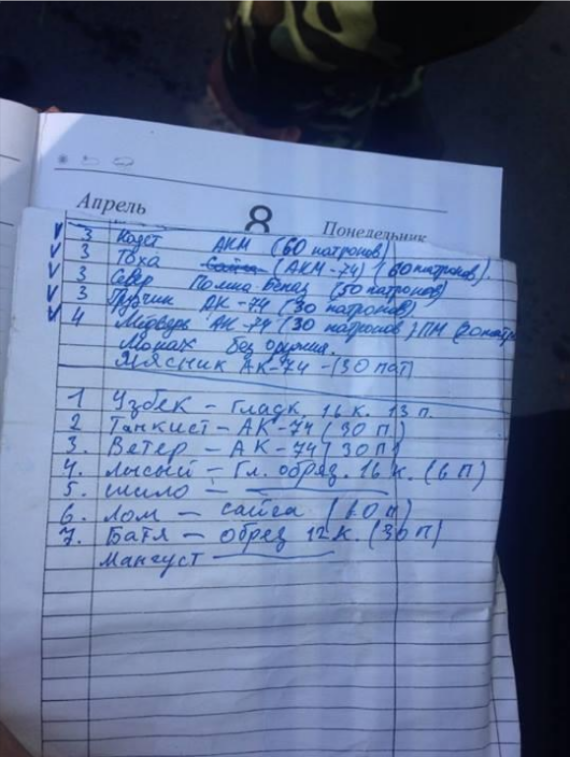 Апрель 8 Понедельник
3 Кадет АКМ (60 патронов)
3 Тоха Сайга (АКМ-74) (60 патронов)
3 Север (50 патронов)
3 Грузчин АК-74 (30 патронов)
4 АК-74 (30 патронов) ПМ (20 патро
Монах без оружия.
Мясник АК-74 - (30 пат)
1 Узбек - гладк. 16 к. 13 п.
2 Танкист - АК-74 (30 п)
3. Ветер - АК-74 (30 п)
4. лысый - Гл. обрез. 16 к. (6 п)
5. шило -
6. Лом - сайга (60 п)
7. Батя - обрез 12 к. (30 п)
Мангуст